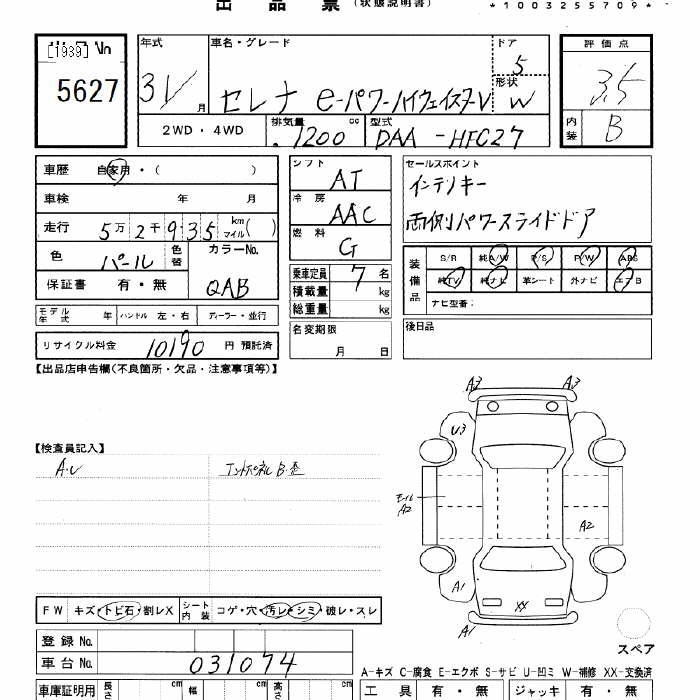 出品票（状態説明書）
*1003255709*
[1939] No
5627
年式 31 月
車名・グレード セレナ e-パワーハイウェイスターV
ドア 5
形状 W
2WD・4WD
排気量 1200 cc
型式 DAA-HFC27
評価点 3.5
内装 B
車歴 自家用・( )
車検 年 月
走行 5万2千935 km マイル( )
色 パール 色替 カラーNo. QAB
保証書 有・無
シフト AT
冷房 AAC
燃料 G
乗車定員 7 名
積載量 kg
総重量 kg
名変期限 月 日
セールスポイント
インテリキー
両側パワースライドドア
装備品 S/R 純A/W P/S P/W ABS
純TV 純ナビ 革シート 外ナビ エアB
ナビ型番：
後日品
モデル年式 年 ハンドル 左・右 ディーラー・並行
リサイクル料金 10190 円 預託済
【出品店申告欄(不良箇所・欠品・注意事項等)】
【検査員記入】
A.U エンドパネルB・歪
A3 A3
U3
モール A2
A2
A1
XX
A1
スペア
FW キズ・トビ石・割レX シート内装 コゲ・穴・汚レ・シミ・破レ・スレ
登録No.
車台No. 031074
A-キズ C-腐食 E-エクボ S-サビ U-凹ミ W-補修 XX-交換済
車庫証明用 長さ cm 幅 cm 高さ cm
工具 有・無 ジャッキ 有・無